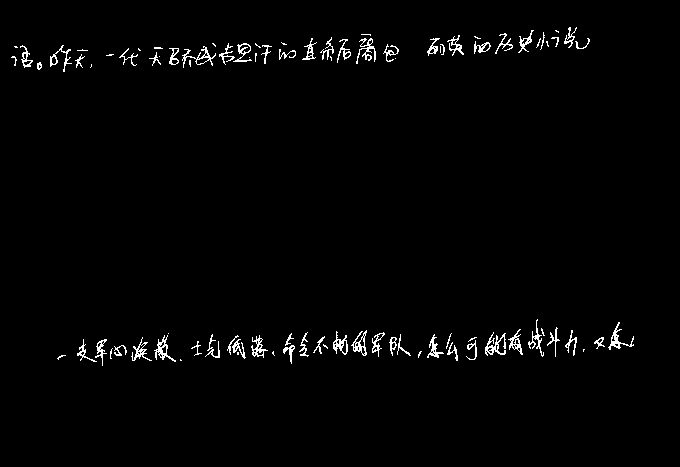 话。昨天,一代天骄成吉思汗的直系后裔包 丽英的历史小说
一支军心涣散、士气低落、命令不畅的军队,怎么可能有战斗力,又怎